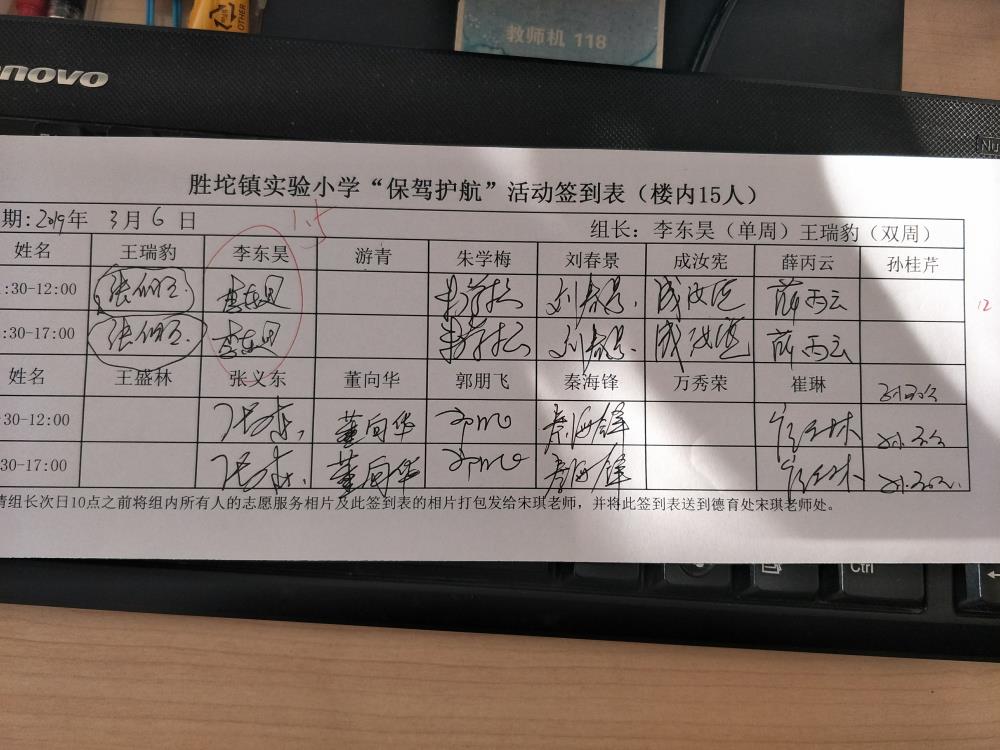 OTHER
教师机 118
novo
胜坨镇实验小学“保驾护航”活动签到表（楼内15人）
期:2019年 3月 6 日 组长：李东昊（单周）王瑞豹（双周）
1.5
姓名 王瑞豹 李东昊 游青 朱学梅 刘春景 成汝宪 薛丙云 孙桂芹
:30-12:00 李东昊 刘春景 成汝宪 薛丙云
12
:30-17:00 李东昊 刘春景 成汝宪 薛丙云
姓名 王盛林 张义东 董向华 郭朋飞 秦海锋 万秀荣 崔琳
:30-12:00 董向华 秦海锋
30-17:00 董向华 秦海锋
请组长次日10点之前将组内所有人的志愿服务相片及此签到表的相片打包发给宋琪老师，并将此签到表送到德育处宋琪老师处。
Ctrl